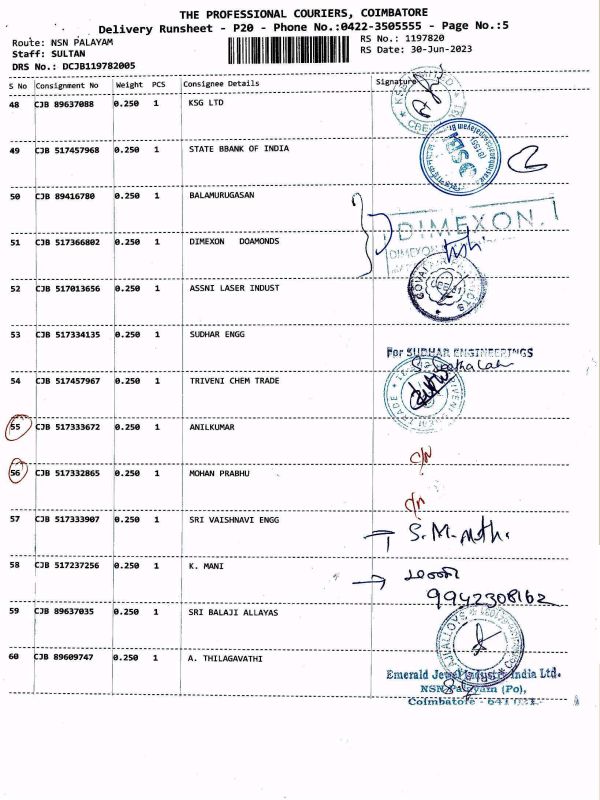 THE PROFESSIONAL COURIERS, COIMBATORE
Delivery Runsheet - P20 - Phone No.:0422-3505555 - Page No.:5
Route: NSN PALAYAM
RS No.: 1197820
Staff: SULTAN
RS Date: 30-Jun-2023
DRS No.: DCJB119782005
S No Consignment No Weight PCS Consignee Details Signature
48 CJB 89637088 0.250 1 KSG LTD
49 CJB 517457968 0.250 1 STATE BBANK OF INDIA
50 CJB 89416780 0.250 1 BALAMURUGASAN
DIMEXON
51 CJB 517366802 0.250 1 DIMEXON DOAMONDS
52 CJB 517013656 0.250 1 ASSNI LASER INDUST
53 CJB 517334135 0.250 1 SUDHAR ENGG
For SUDHAR ENGINEERINGS
54 CJB 517457967 0.250 1 TRIVENI CHEM TRADE
55 CJB 517333672 0.250 1 ANILKUMAR
56 CJB 517332865 0.250 1 MOHAN PRABHU
57 CJB 517333907 0.250 1 SRI VAISHNAVI ENGG
58 CJB 517237256 0.250 1 K. MANI
9942308162
59 CJB 89637035 0.250 1 SRI BALAJI ALLAYAS
60 CJB 89609747 0.250 1 A. THILAGAVATHI
Emerald Jewel Industry India Ltd.
NSN Palayam (Po),
Coimbatore - 641 031.